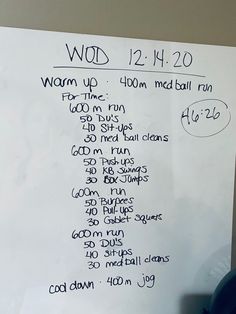 WOD 12.14.20
Warm up · 400m med ball run
For Time:
46:26
600m run
50 DU's
40 Sit-ups
30 med ball cleans
600 m run
50 Push ups
40 KB Swings
30 Box Jumps
600m run
50 Burpees
40 Pull-ups
30 Goblet Squats
600m run
50 DU's
40 Sit ups
30 med ball cleans
cool down · 400m jog